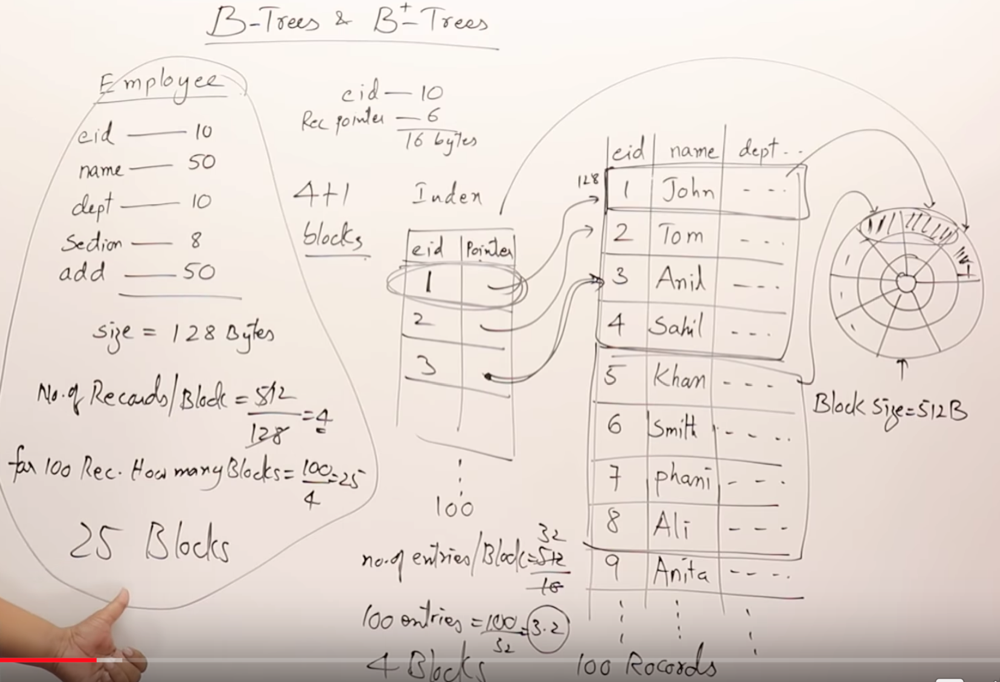 B-Trees & B+-Trees
Employee
eid — 10
name — 50
dept — 10
Section — 8
add — 50
size = 128 Bytes
No. of Records/Block = 512/128 = 4
for 100 Rec. How many Blocks = 100/4 = 25
25 Blocks
eid — 10
Rec pointer — 6
16 bytes
4+1
blocks
Index
eid Pointer
1
2
3
100
no. of entries/Block = 512/16 32
100 entries = 100/32 = 3.2
4 Blocks
eid name dept ..
128
1 John - - -
2 Tom - - -
3 Anil - - -
4 Sahil - - -
5 Khan - - -
6 Smith - - - -
7 phani - - -
8 Ali - - -
9 Anita - - - -
100 Rocords
Block Size = 512B